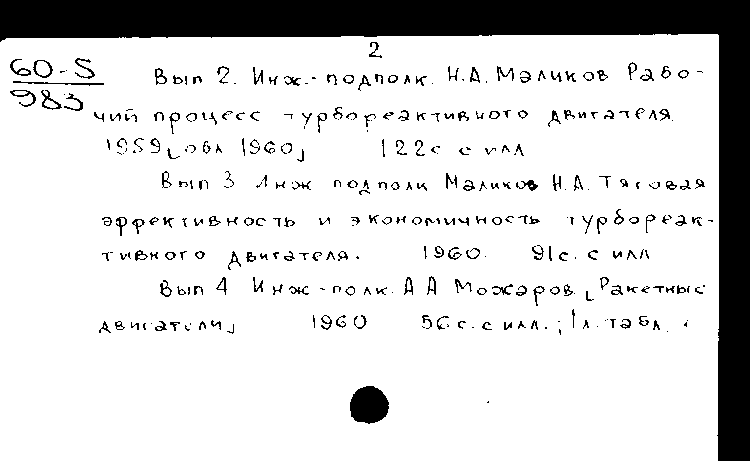 2
60-5
983
Вып 2. Инж.-подполк. Н.А. Маликов Рабо-
чий процесс турбореактивного двигателя.
1959 [обл 1960] 122с с илл
Вып 3 Инж подполк Маликов Н.А. Тяговая
эффективность и экономичность турбореак-
тивного двигателя. 1960. 91с. с илл
Вып 4 Инж-полк. А А Можаров [Ракетные
двигатели] 1960 56с. с илл.; 1л. табл.